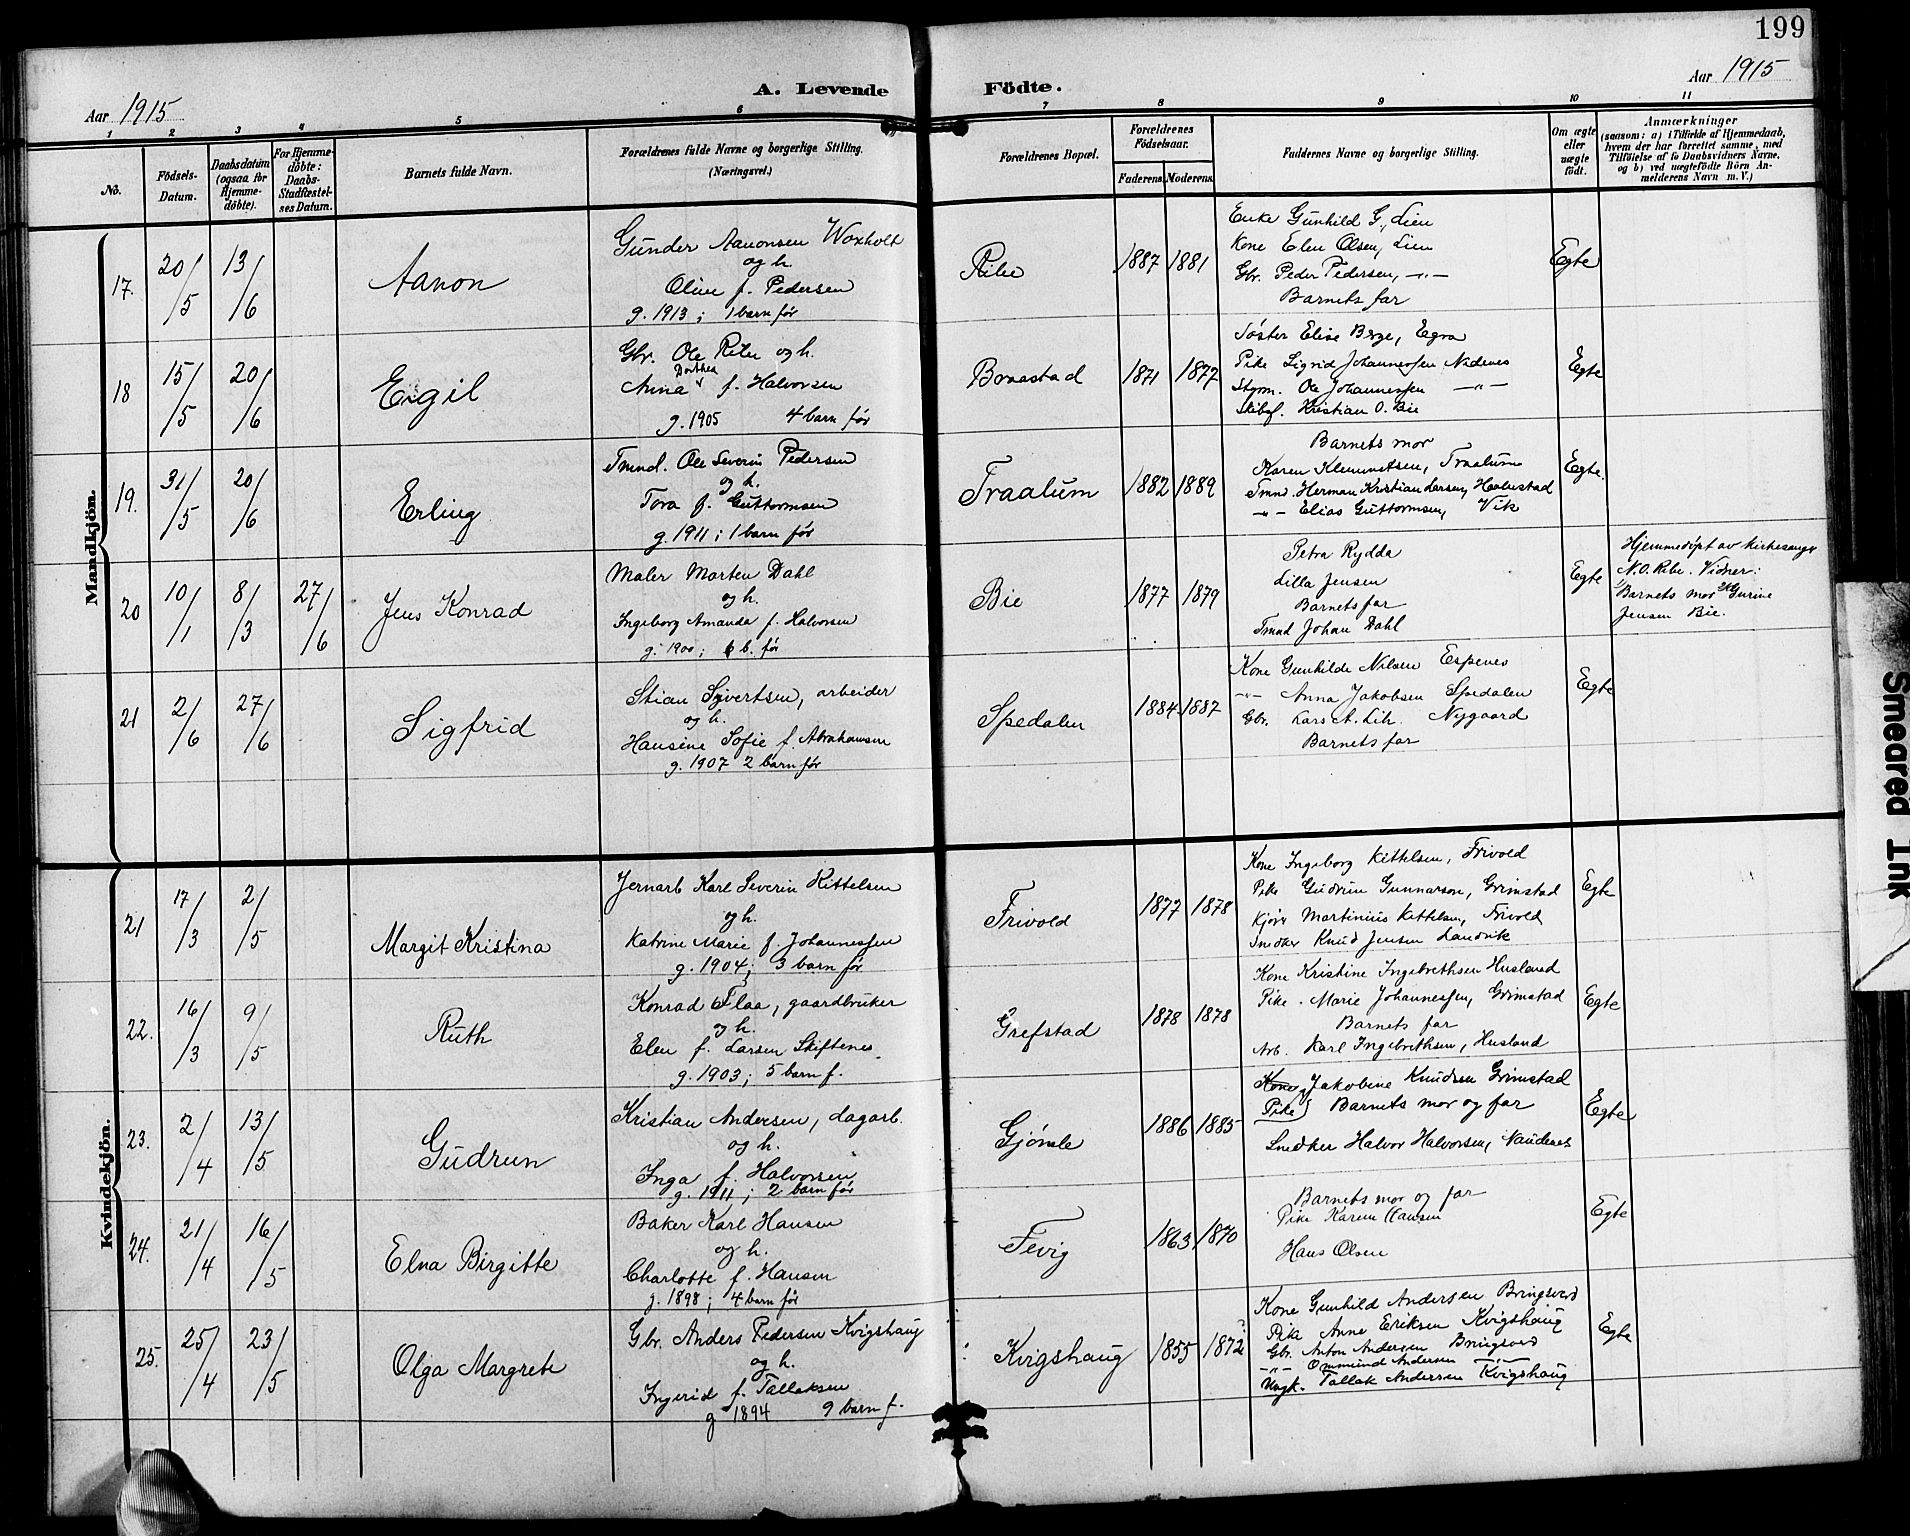 199
Aar 1915
A. Levende Födte.
Aar 1915
1 2 3 4 5 6 7 8 9 10 11
No.
Födsels-Datum.
Daabsdatum (ogsaa for Hjemme-döbte).
For Hjemme-döbte: Daabs-Stadfæstel-ses Datum.
Barnets fulde Navn.
Forældrenes fulde Navne og borgerlige Stilling.
(Næringsvei.)
Forældrenes Bopæl.
Forældrenes Födselsaar.
Faderens. Moderens.
Faddernes Navne og borgerlige Stilling.
Om ægte eller uægte födt.
Anmærkninger
(saasom: a) i Tilfælde af Hjemmedaab,
hvem der har forrettet samme, med
Tilföielse af to Daabsvidners Navne,
og b) ved uægtefödte Börn An-
melderens Navn m. V.)
Mandkjön.
17. 20/5 13/6 Aanon
Gunder Aanonsen Woxholt
og h.
Oline f. Pedersen
g. 1913; 1 barn før
Ribe 1887 1881
Enke Gunhild G. Lien
Kone Elen Olsen, Lien
Gbr. Peder Pedersen, -"-
Barnets far
Egte
18 15/5 20/6 Eigil
Gbr. Ole Ribe og h.
Dorthea
Anna f. Halvorsen
g. 1905 4 barn før
Bonastad 1871 1877
Søster Elise Berge, Egra
Pike Sigrid Johannessen Nidenes
Styrm. Ole Johannessen -"-
Skibsf. Kristian O. Bie
Egte
19. 31/5 20/6 Erling
Tmnd. Ole Severin Pedersen
og h.
Tora f. Guttormsen
g. 1911; 1 barn før
Traalum 1882 1889
Barnets mor
Karen Klemmetsen, Traalum
Tmnd. Herman Kristian Larsen,
-"- Elias Guttormsen, Vik
Egte.
20 10/1 8/3 27/6 Jens Konrad
Maler Morten Dahl
og h.
Ingeborg Amanda f. Halvorsen
g. 1900; 6 b. før
Bie 1877 1879
Petra Rydda
Lilla Jensen
Barnets far
Tmnd Johan Dahl
Egte
Hjemmedøpt av kirkesanger
N. O. Ribe. Vidner:
1) Barnets mor 2) Gurine
Jensen Bie.
21 2/6 27/6 Sigfrid
Stian Sivertsen, arbeider
og h.
Hansine Sofie f. Abrahamsen
g. 1907 2 barn før
Spedalen 1884 1887
Kone Gunhilde Nilsen Espenes
-"- Anna Jakobsen Spedalen
Gbr. Lars A. Nygaard
Barnets far
Egte
Kvindekjön.
21 17/3 2/5 Margit Kristina
Jernarb Karl Severin Kittelsen
og h.
Katrine Marie f. Johannessen
g. 1904; 3 barn før
Frivold 1877 1878
Kone Ingeborg Kittelsen, Frivold
Pike Gudrun Gunnarson, Grimstad
Kjørv Martinius Kittelsen, Frivold
Snedker Knud Jensen Landvik
Egte
22. 16/3 9/5 Ruth
Konrad Flaa, gaardbruker
og h.
Elen f. Larsen Skiftenes
g. 1903; 5 barn f.
Grefstad 1878 1878
Kone Kristine Ingebrethsen Husland
Pike. Marie Johannessen, Grimstad
Barnets far
Arb. Karl Ingebrethsen, Husland
Egte
23. 2/4 13/5 Gudrun
Kristian Andersen, dagarb.
og h.
Inga f. Halvorsen
g. 1911; 2 barn før
Gjömle 1886 1885
Kone Jakobine Knudsen Grimstad
Pike Barnets mor og far
Snedker Halvor Halvorsen,
Egte
24. 21/4 16/5 Elna Birgitte
Baker Karl Hansen
og h.
Charlotte f. Hansen
g. 1898; 4 barn før
Fevig 1863 1870
Barnets mor og far
Pike Karen Hansen
Hans Olsen
Egte
25. 25/4 23/5 Olga Margrete
Gbr. Anders Pedersen Kvigshaug
og h.
Ingerid f. Tallaksen
g 1894 9 barn f.
Kvigshaug 1855 1872
Kone Gunhild Andersen Bringsverd
Pike Anne Eriksen Kvigshaug
Gbr. Anton Andersen Bringsverd
-"- Ommund Andersen
Ungk. Tallak Andersen Kvigshaug
Egte
Smeared Ink